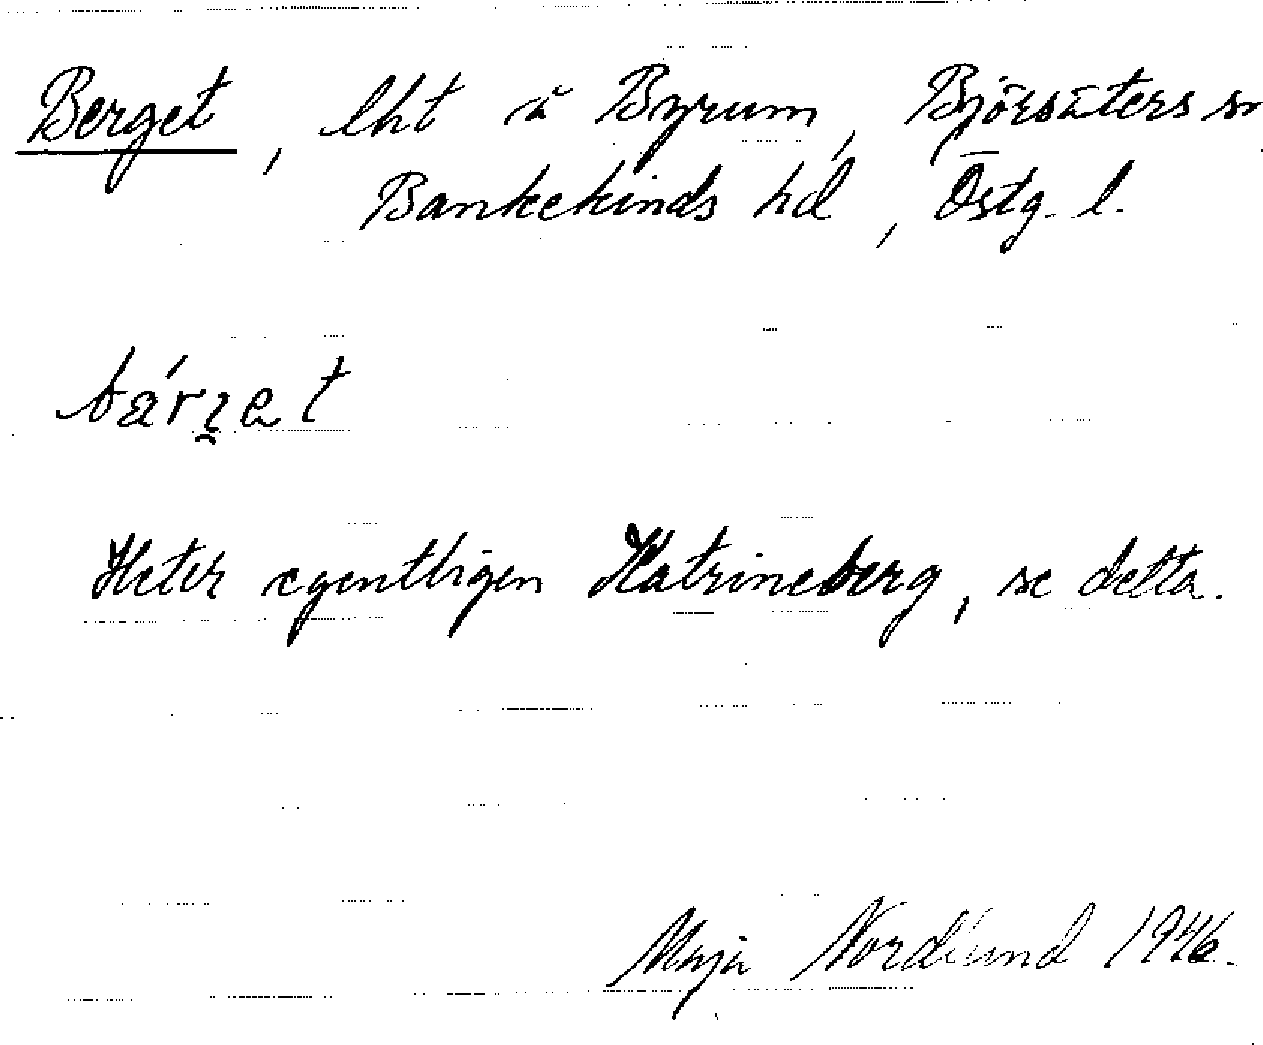 Berget, lht å Byrum, Björsäters sn
Bankekinds hd, Östg. l.
Heter egentligen Katrineberg, se detta.
Maja Nordlund 1946.